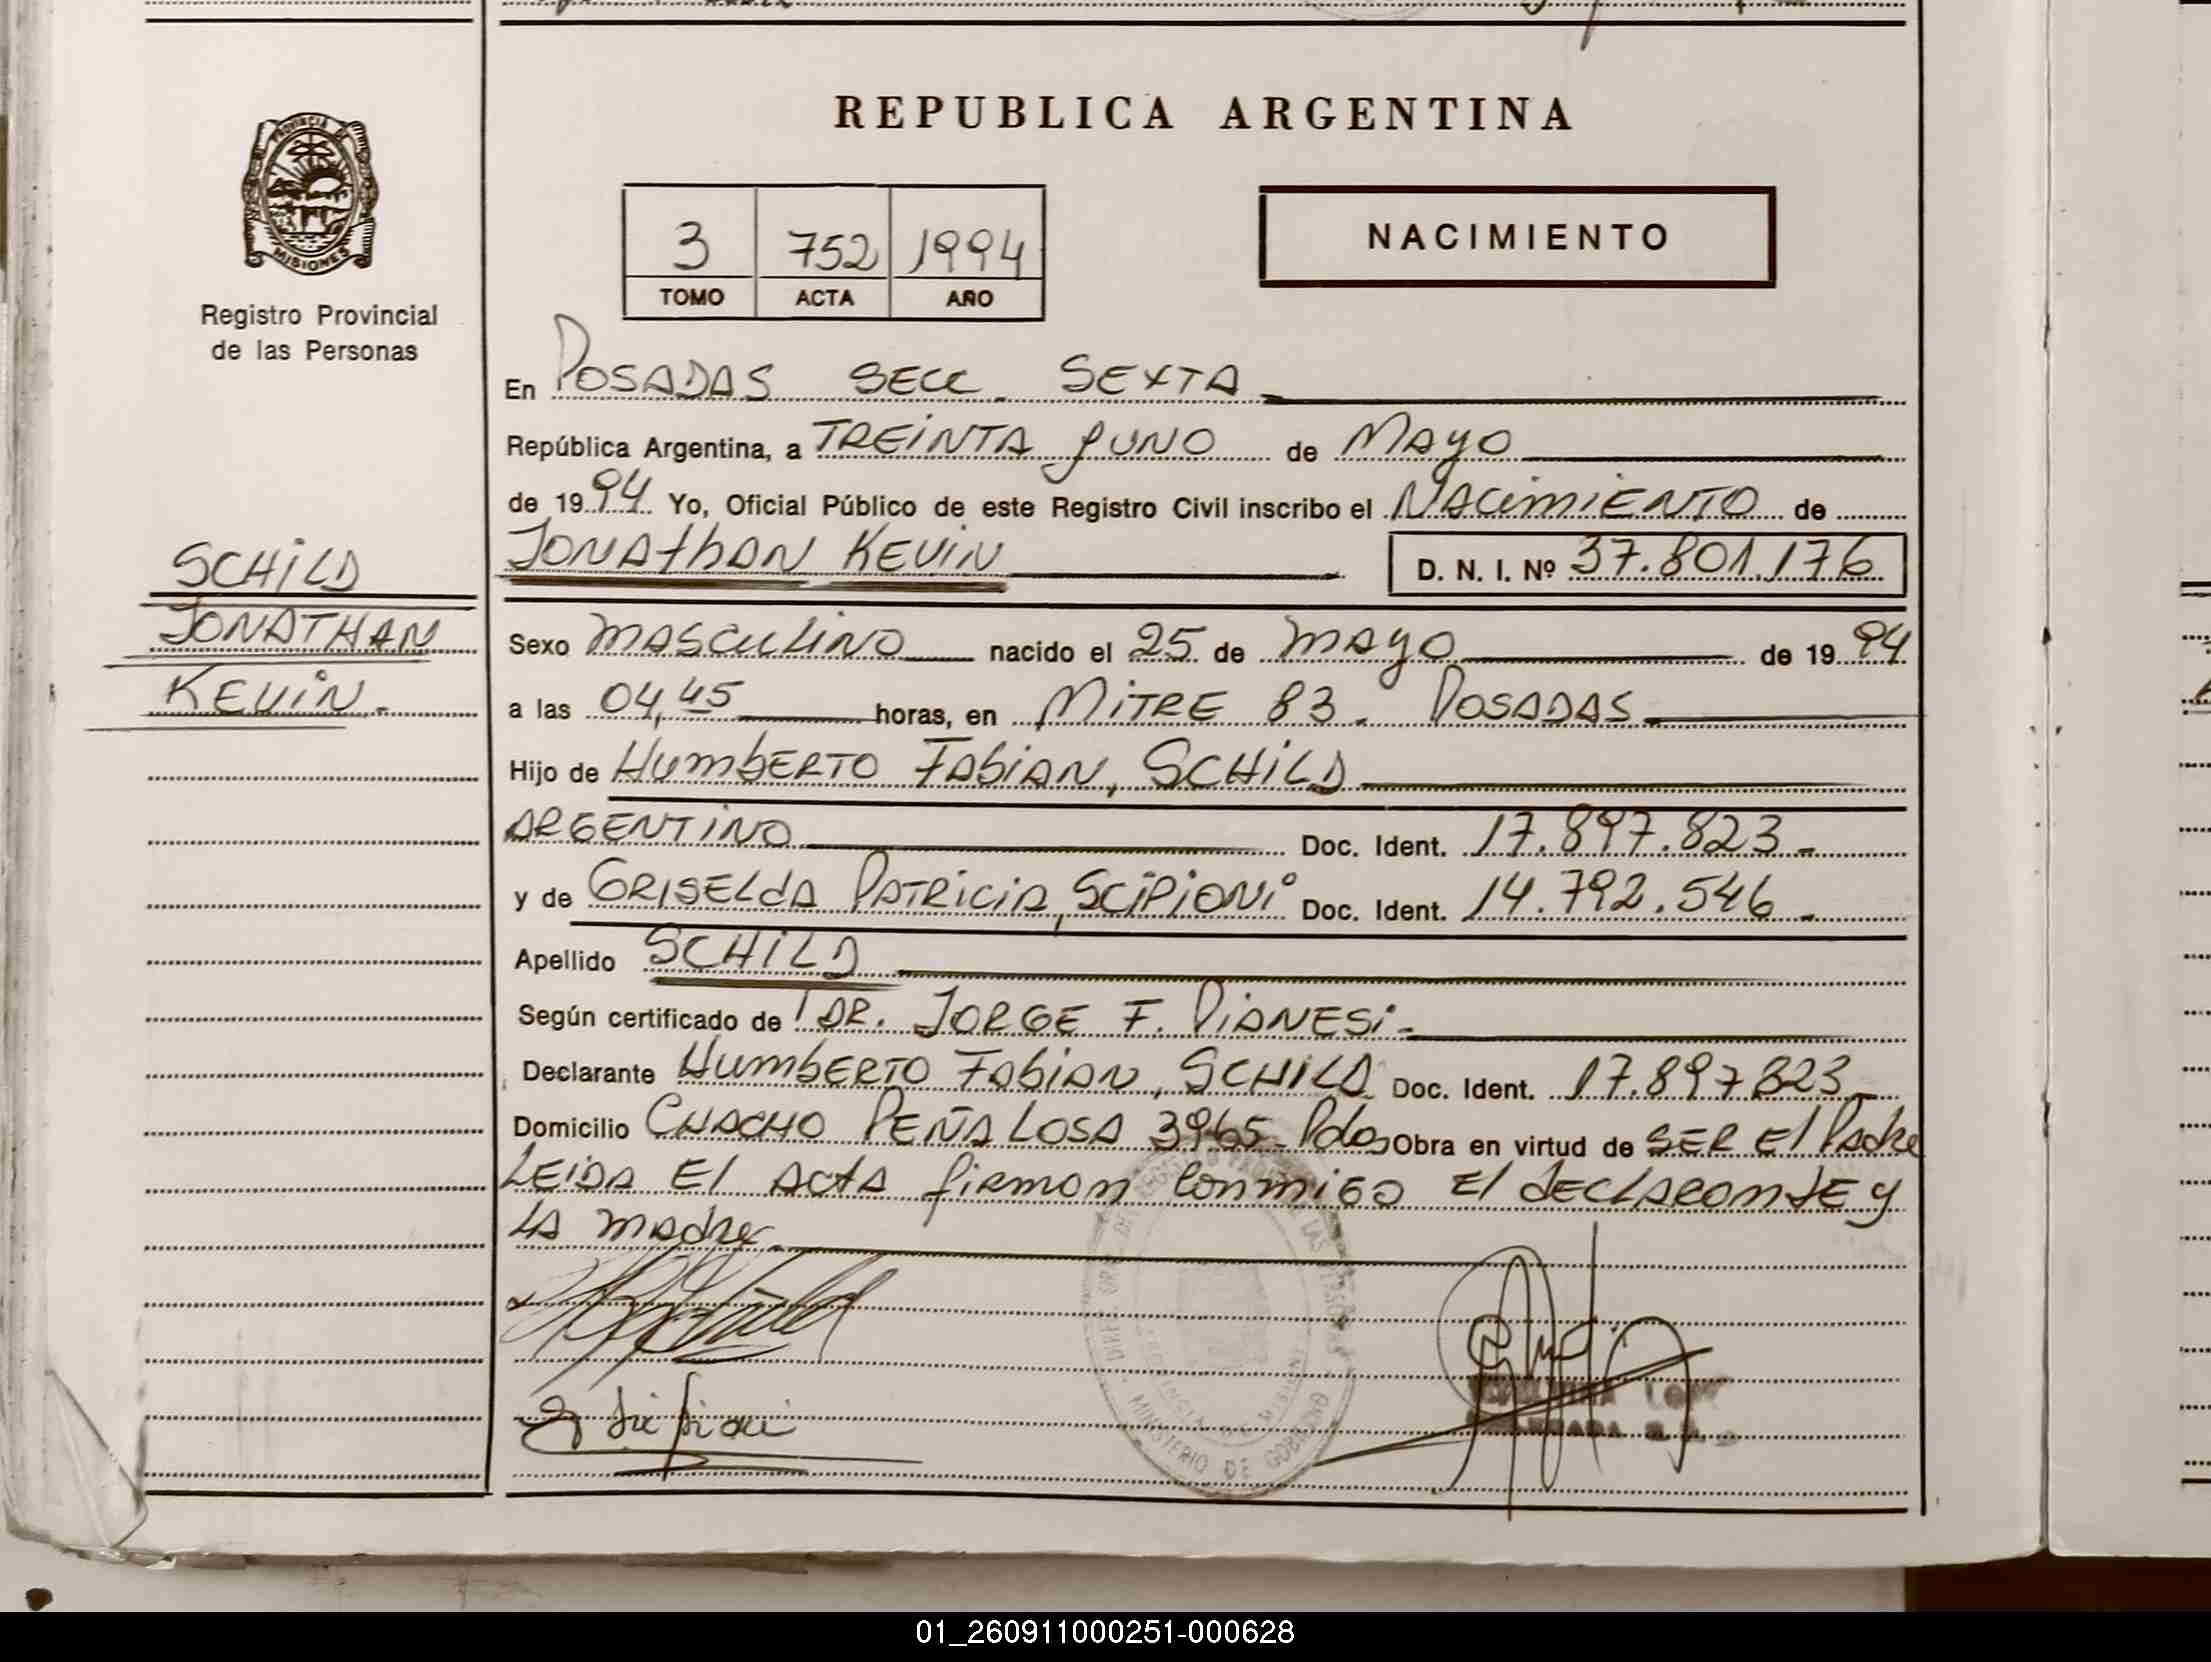 PROVINCIA DE
MISIONES
Registro Provincial
de las Personas
SCHILD
JONATHAN
KEVIN.
REPUBLICA ARGENTINA
3 752 1994
TOMO ACTA AÑO
NACIMIENTO
En POSADAS SECC. SEXTA
República Argentina, a TREINTA y UNO de MAYO
de 1994 Yo, Oficial Público de este Registro Civil inscribo el NACIMIENTO de
JONAThAN KEVIN D. N. I. Nº 37.801.176
Sexo MASCULINO nacido el 25 de MAYO de 1994
a las 04,45 horas, en MITRE 83. POSADAS
Hijo de HUMbERTO FAbIAN, SCHILD
ARGENTINO Doc. Ident. 17.897.823-
y de GRISELdA PATRICIA, SCIPIONI Doc. Ident. 14.792.546-
Apellido SCHILD
Según certificado de DR. JORGE F. PIANESI-
Declarante HUMbERTO FAbIAN, SCHILD Doc. Ident. 17.897823-
Domicilio CHACHO PEÑALOSA 3965- Pdas Obra en virtud de SER El PAdre
LEIDA El ActA firman conmigo El dECLARANTE y
LA MAdre.
MINISTERIO DE GOBIERNO
01_260911000251-000628